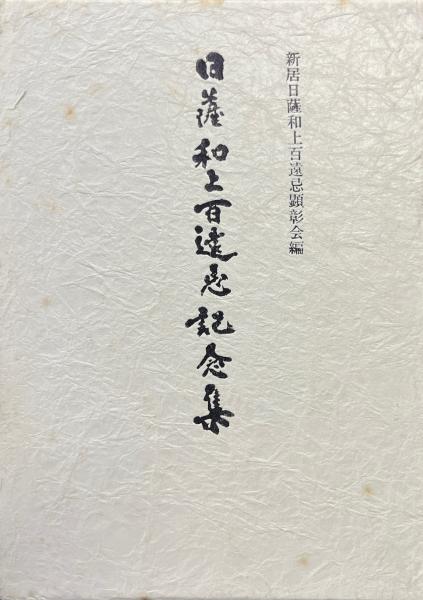 新居日薩和上百遠忌顕彰会編
日薩和上百遠忌記念集